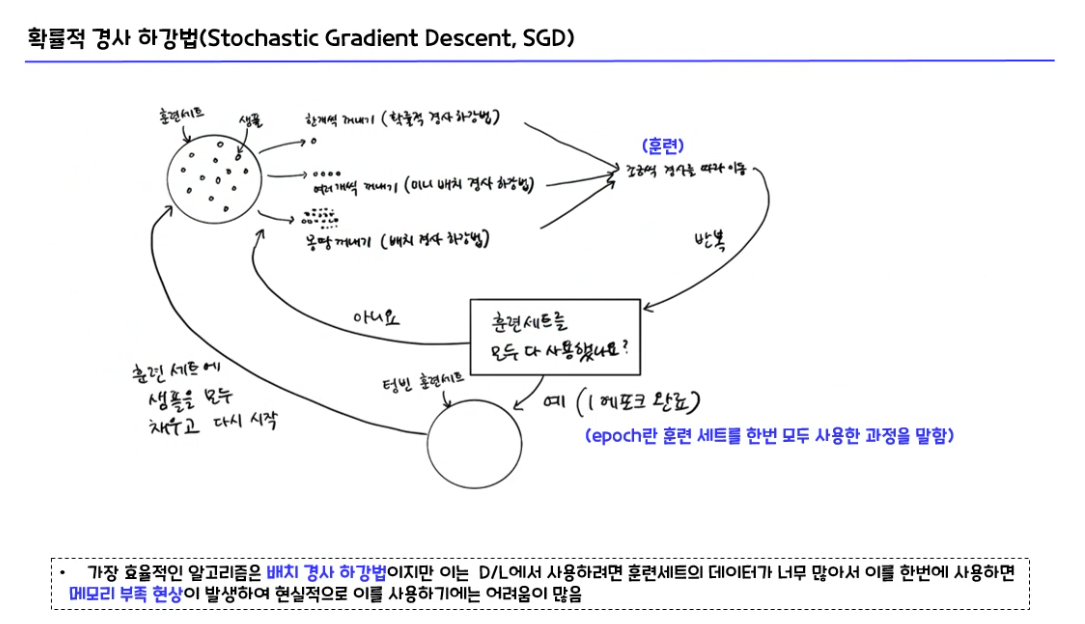 확률적 경사 하강법(Stochastic Gradient Descent, SGD)
훈련세트
샘플
한개씩 꺼내기 (확률적 경사 하강법)
여러개씩 꺼내기 (미니 배치 경사 하강법)
몽땅 꺼내기 (배치 경사 하강법)
(훈련)
조금씩 경사를 따라 이동
반복
훈련세트를
모두 다 사용했나요?
아니요
예 (1 에포크 완료)
(epoch란 훈련 세트를 한번 모두 사용한 과정을 말함)
텅빈 훈련세트
훈련 세트에
샘플을 모두
채우고 다시 시작
• 가장 효율적인 알고리즘은 배치 경사 하강법이지만 이는 D/L에서 사용하려면 훈련세트의 데이터가 너무 많아서 이를 한번에 사용하면
메모리 부족 현상이 발생하여 현실적으로 이를 사용하기에는 어려움이 많음